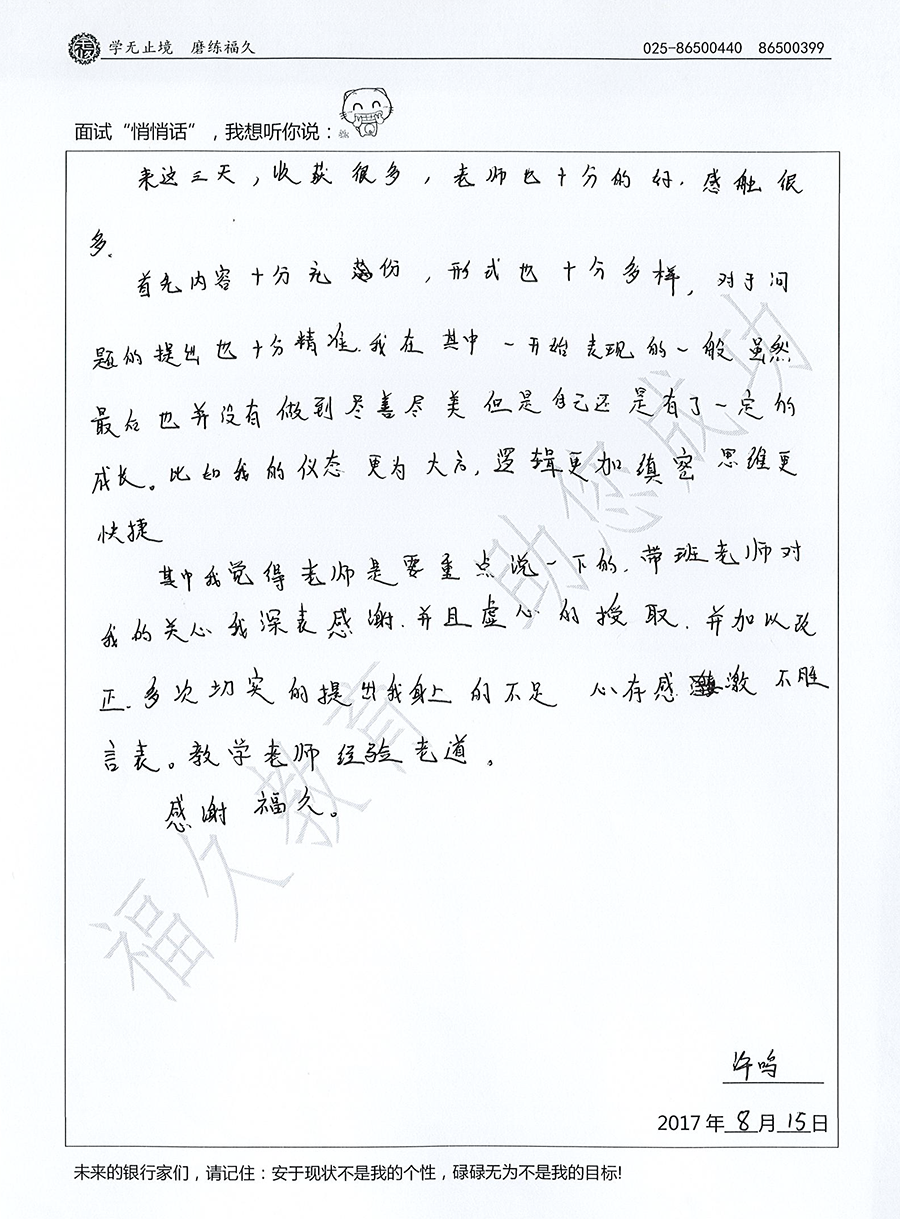 学无止境 磨练福久 025-86500440 86500399
面试“悄悄话”，我想听你说：
来这三天，收获很多，老师也十分的好.感触很
多.
首先内容十分充份，形式也十分多样，对于问
题的提出也十分精准.我在其中一开始表现的一般虽然
最后也并没有做到尽善尽美但是自己还是有了一定的
成长。比如我的仪态更为大方,逻辑更加缜密思维更
快捷
其中我觉得老师是要重点说一下的.带班老师对
我的关心我深表感谢.并且虚心的授取.并加以改
正.多次切实的提出我身上的不足 心存感激不胜
言表。教学老师经验老道。
感谢福久。
福久教育 助您成功
许鸣
2017年8月15日
未来的银行家们，请记住：安于现状不是我的个性，碌碌无为不是我的目标!